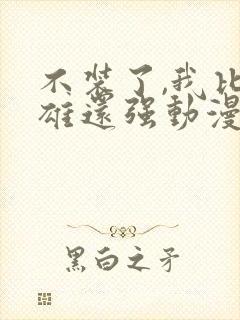 不装了,我比
雄還强動漫
黑白之矛